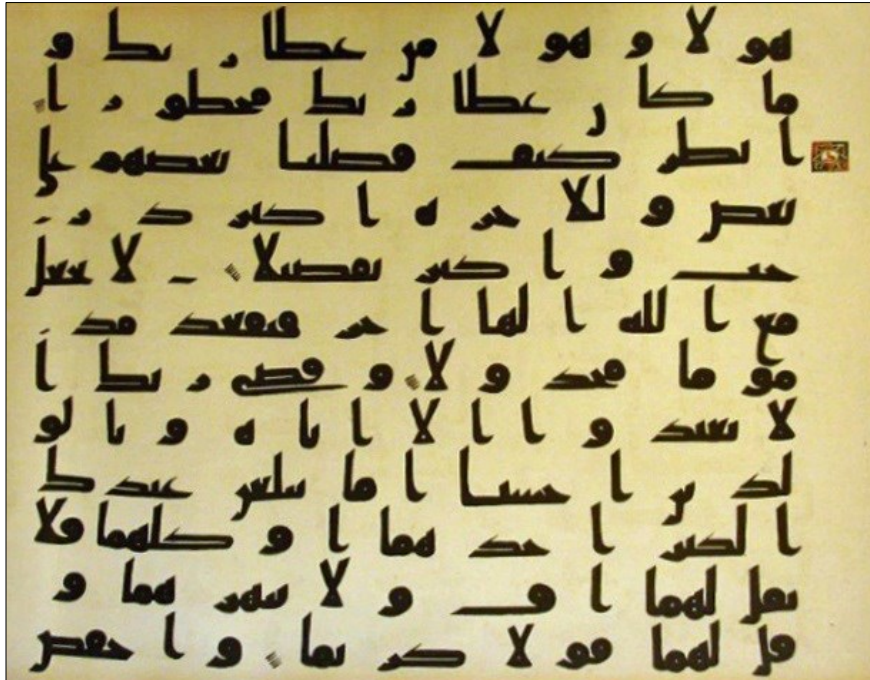 هولا وهولا من عطا ربك و
ما كان عطا ربك محظورا
انظر كيف فضلنا بعضهم على
بعض وللاخره اكبر در
جت واكبر تفضيلا لا تجعل
مع الله الها اخر فتقعد مذ
موما مخذولا وقضى ربك ا
لا تعبدوا الا اياه وبالو
لدين احسنا اما يبلغن عندك
الكبر احدهما او كلهما فلا
تقل لهما اف ولا تنهرهما و
قل لهما قولا كريما واخفض